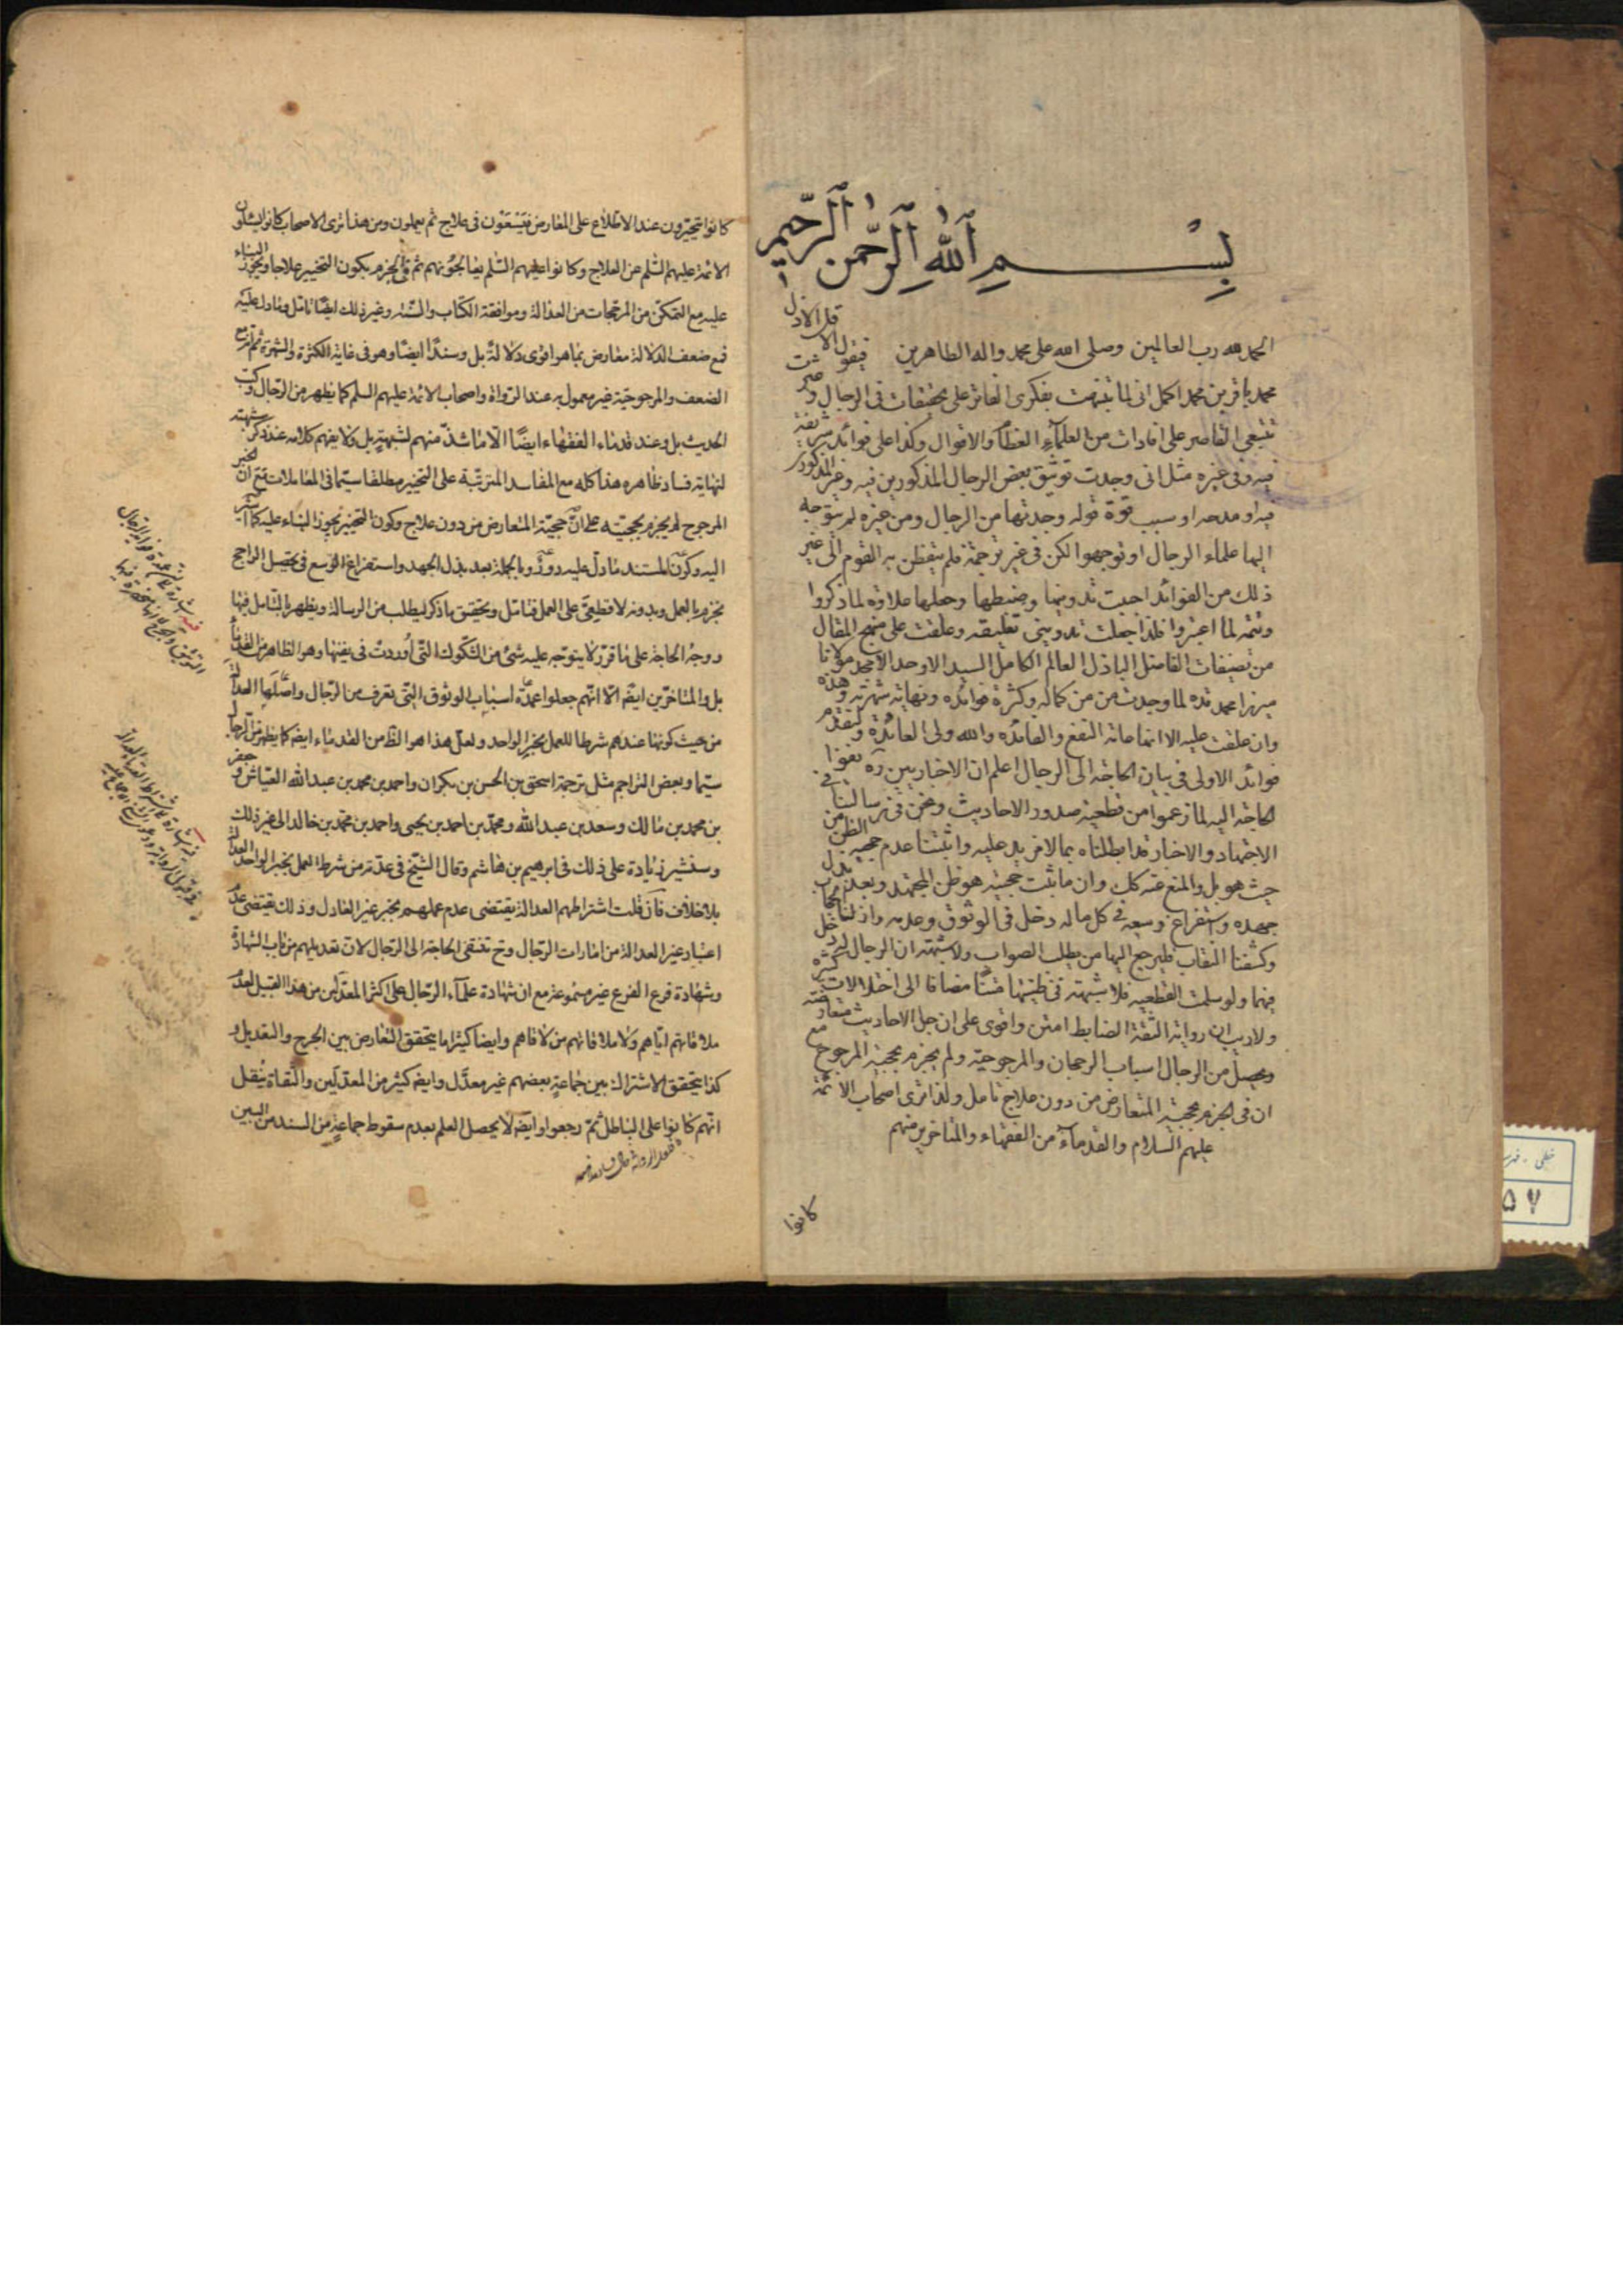 بسم الله الرحمن الرحيم
الحمد لله رب العالمين وصلى الله على محمد واله الطاهرين فيقول الاقل الاذل
محمد باقر بن محمد اكمل انى لما تنبهت بفكرى الفاتر على تحقيقات فى الرجال وعثرت
بتتبعى القاصر على افادات من العلماء العظام والاقوال وكذا على فوائد شريفة
فيه وفى غيره مثل انى وجدت توثيق بعض الرجال المذكورين فيه وغير المذكور
فيه او مدحه او سبب قوة قوله وجدتها من الرجال ومن غيره لم يتوجه
اليها علماء الرجال او توجهوا لكن فى غير ترجمته فلم يتفطن به القوم الى غير
ذلك من الفوائد احببت تدوينها وضبطها وجعلها علاوة لما ذكروا
وتتمة لما اعتبروا فلذا جعلت تدوينى تعليقه وعلقت على منهج المقال
من تصنيفات الفاضل الباذل العالم الكامل السيد الاوحد الامجد مولانا
ميرزا محمد قده لما وجدت من كماله وكثرة فوائده ونهاية شهرته وهذه
وان علقت عليه الا انها عامة النفع والفائده والله ولى العائدة ولنقدم
فوائد الاولى فى بيان الحاجة الى الرجال اعلم ان الاخباريين ره نفوا
الحاجة اليه لما زعموا من قطعية صدور الاحاديث ونحن فى رسالتنا فى
الاجتهاد والاخبار قد ابطلناه بما لا مزيد عليه واثبتنا عدم حجية الظن من
حيث هو بل والمنع عنه كك وان ما ثبت حجيته هو ظن المجتهد وبعد بذل
جهده واستفراغ وسعه فى كل ما له دخل فى الوثوق وعدمه وازلنا الحجاب
وكشفنا النقاب فليرجع اليها من يطلب الصواب ولا شبهة ان الرجال له دخل
فيهما ولو سلمت القطعية فلا شبهة فى ظنيتها متنا مضافا الى اختلالات كثيره
ولا ريب ان رواية الثقة الضابط امتن واقوى على ان جل الاحاديث متعارضة
ويحصل من الرجال اسباب الرجحان والمرجوحية ولم يجزم بحجية المرجوح مع
ان فى الجزم بحجية المتعارض من دون علاج تامل ولذا ترى اصحاب الائمة
عليهم السلام والقدماء من الفقهاء والمتاخرين منهم
كانوا
كانوا يتحيرون عند الاطلاع على المعارض فيسعون فى علاج ثم يعملون ومن هذا ترى الاصحاب كانوا يسئلون
الائمة عليهم السلم عن العلاج وكانوا عليهم السلم يعالجونهم ثم فى الجزم بكون التخيير علاجا وتجوز البناء
عليه مع التمكن من المرجحات من العدالة وموافقة الكتاب والسنة وغير ذلك ايضا تامل وما دل عليه
فمع ضعف الدلالة معارض بما هو اقوى دلالة بل وسندا ايضا وهو فى غاية الكثرة والشهرة ثم انه مع
الضعف والمرجوحية غير معمول به عند الرواة واصحاب الائمة عليهم السلم كما يظهر من الرجال وكتب
الحديث بل وعند قدماء الفقهاء ايضا الا ما شذ منهم لشبهة بل ولا يفهم كلامه عند ذكر شبهته
لنهاية فساد ظاهره هذا كله مع المفاسد المترتبة على التخيير مطلقا سيما فى المعاملات مع ان الخبر
المرجوح لم يجزم بحجيته على ان حجية المتعارض من دون علاج وكون التخيير يجوز البناء عليه كما اشير
اليه وكون المستند ما دل عليه دور وبالجملة بعد بذل الجهد واستفراغ الوسع فى تحصيل الراجح
نجزم بالعمل وبدونه لا قطعى على العمل فتامل وتحقيق ما ذكر ليطلب من الرسالة ويظهر بالتامل فيها
ووجه الحاجة على ما قرر لا يتوجه عليه شئ من الشكوك التى اوردت فى نفيها وهو الظاهر من القدماء
بل والمتاخرين ايضه الا انهم جعلوا عمدة اسباب الوثوق التى تعرف من الرجال واصلها العدالة
من حيث كونها عندهم شرطا للعمل بخبر الواحد ولعل هذا هو الظ من القدماء ايضه كما يظهر من الرجال
سيما وبعض التراجم مثل ترجمة اسحق بن الحسن بن بكران واحمد بن محمد بن عبد الله العياش وجعفر
بن محمد بن مالك وسعد بن عبد الله ومحمد بن احمد بن يحيى واحمد بن محمد بن خالد الى غير ذلك
وسنشير زيادة على ذلك فى ابرهيم بن هاشم وقال الشيخ فى عدته من شرط العمل بخبر الواحد العدالة
بلا خلاف فان قلت اشتراطهم العدالة يقتضى عدم عملهم بخبر غير العادل وذلك يقتضى عدم
اعتبار غير العدالة من امارات الرجال وح تنتفى الحاجة الى الرجال لان تعديلهم من باب الشهادة
وشهادة فرع الفرع غير مسموعة مع ان شهادة علماء الرجال على اكثر المعدلين من هذا القبيل لعدم
ملاقاتهم اياهم ولا ملاقاتهم من لاقاهم وايضا كثيرا ما يتحقق التعارض بين الجرح والتعديل و
كذا يتحقق الاشتراك بين جماعة بعضهم غير معدل وايضه كثير من المعدلين والثقاة ينقل
انهم كانوا على الباطل ثم رجعوا وايضه لا يحصل العلم بعدم سقوط جماعة من السند من البين